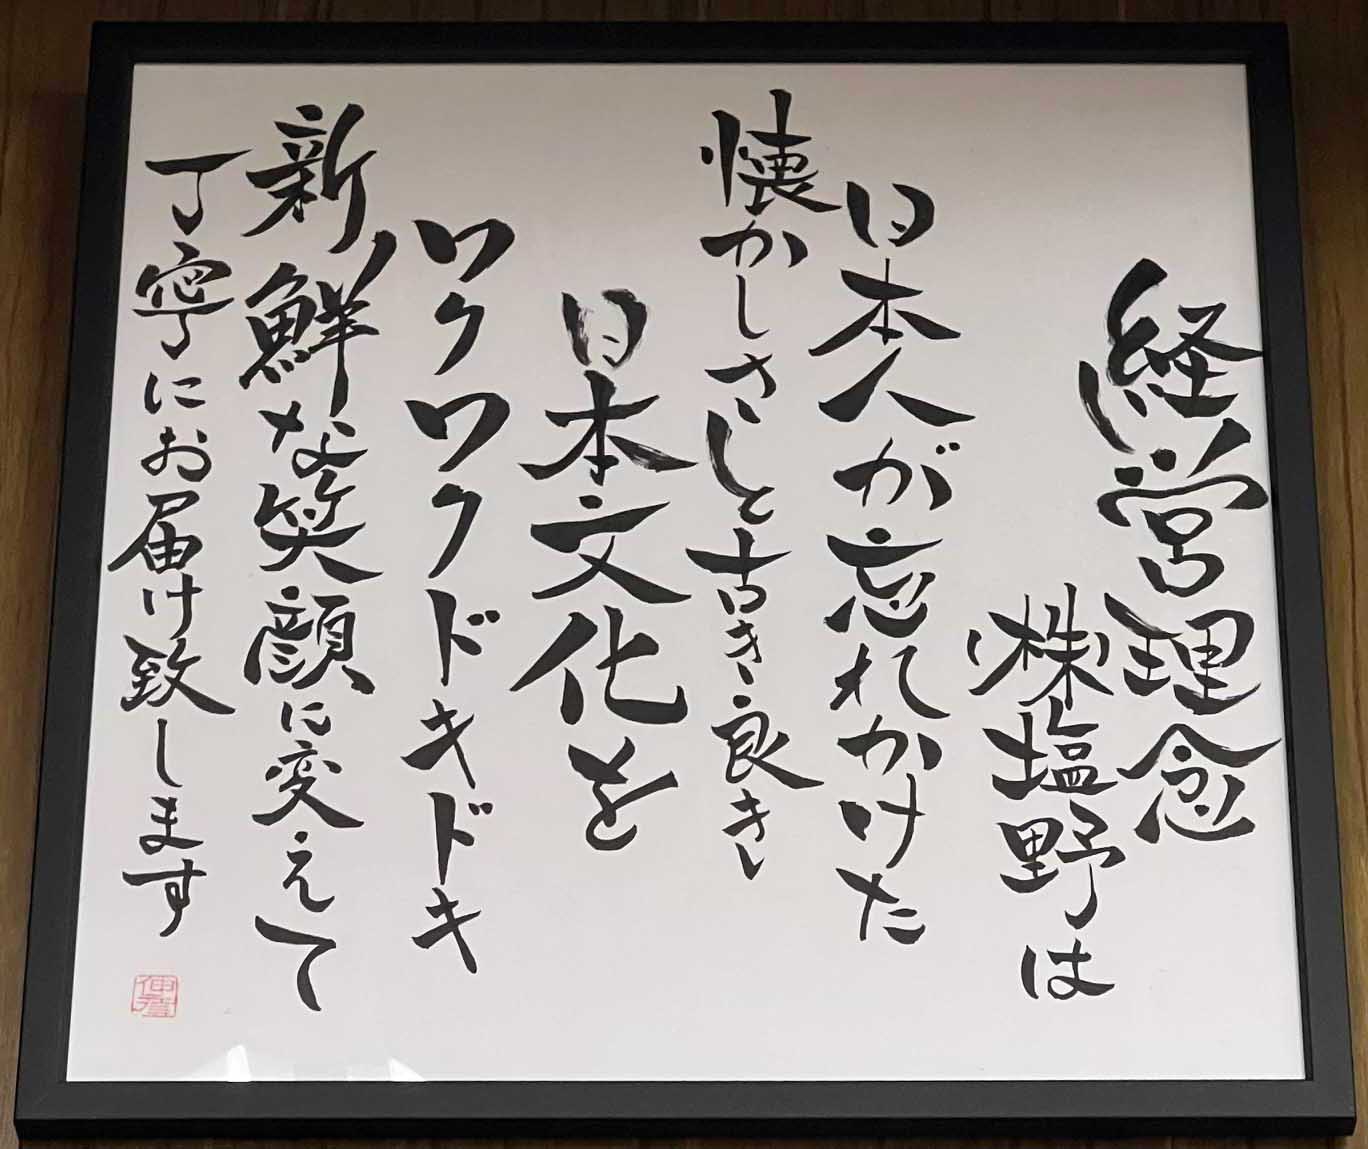 経営理念
(株)塩野は
日本人が忘れかけた
懐かしさと古き良き
日本文化を
ワクワクドキドキ
新鮮な笑顔に変えて
丁寧にお届け致します